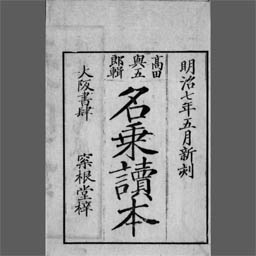 明治七年五月新刻
高田
與五
郎輯
名乗讀本
大阪書肆
寀根堂梓